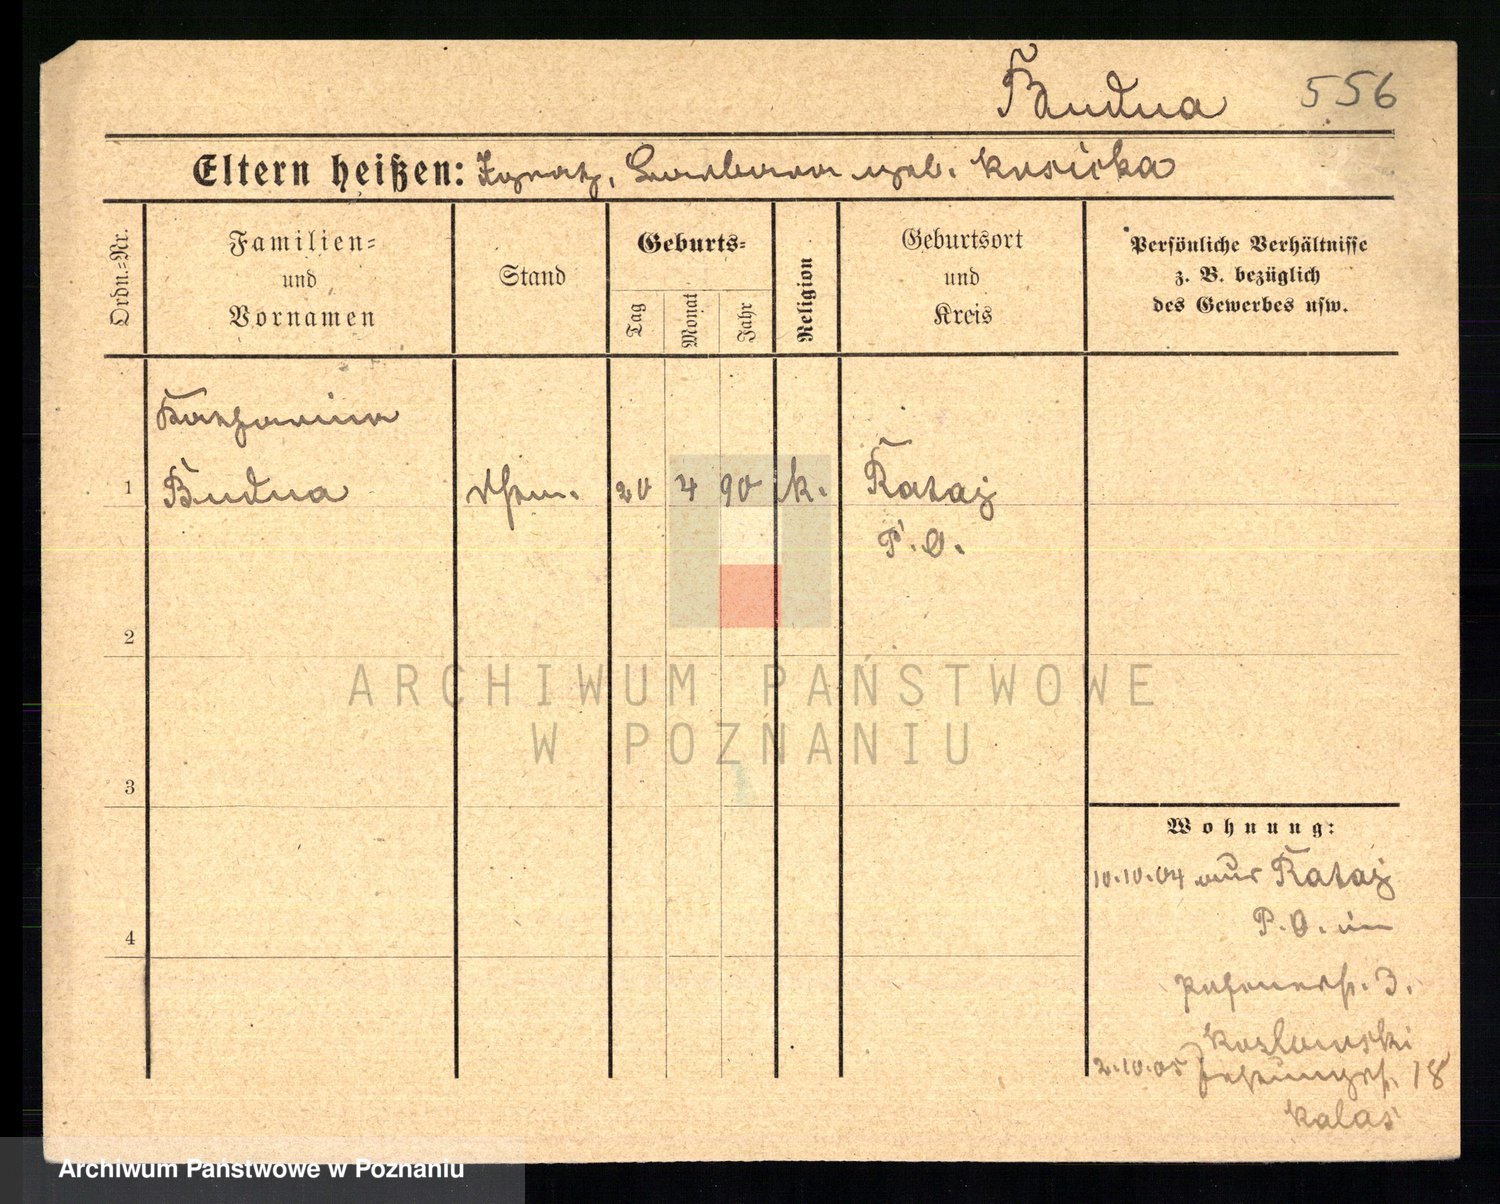 Budna 556
Eltern heißen: Ignatz, Barbara geb. Kosicka
Ordn.=Nr.
Familien=
und
Vornamen
Stand
Geburts=
Tag
Monat
Jahr
Religion
Geburtsort
und
Kreis
Persönliche Verhältnisse
z. B. bezüglich
des Gewerbes usw.
Katharina
1 Budna 20 4 90 k. Rataj
P. O.
2
3
4
Wohnung:
10.10.04 aus Rataj
P. O. in
3.
Kozlowski
2.10.05 18
Kalas
ARCHIWUM PAŃSTWOWE
W POZNANIU
Archiwum Państwowe w Poznaniu